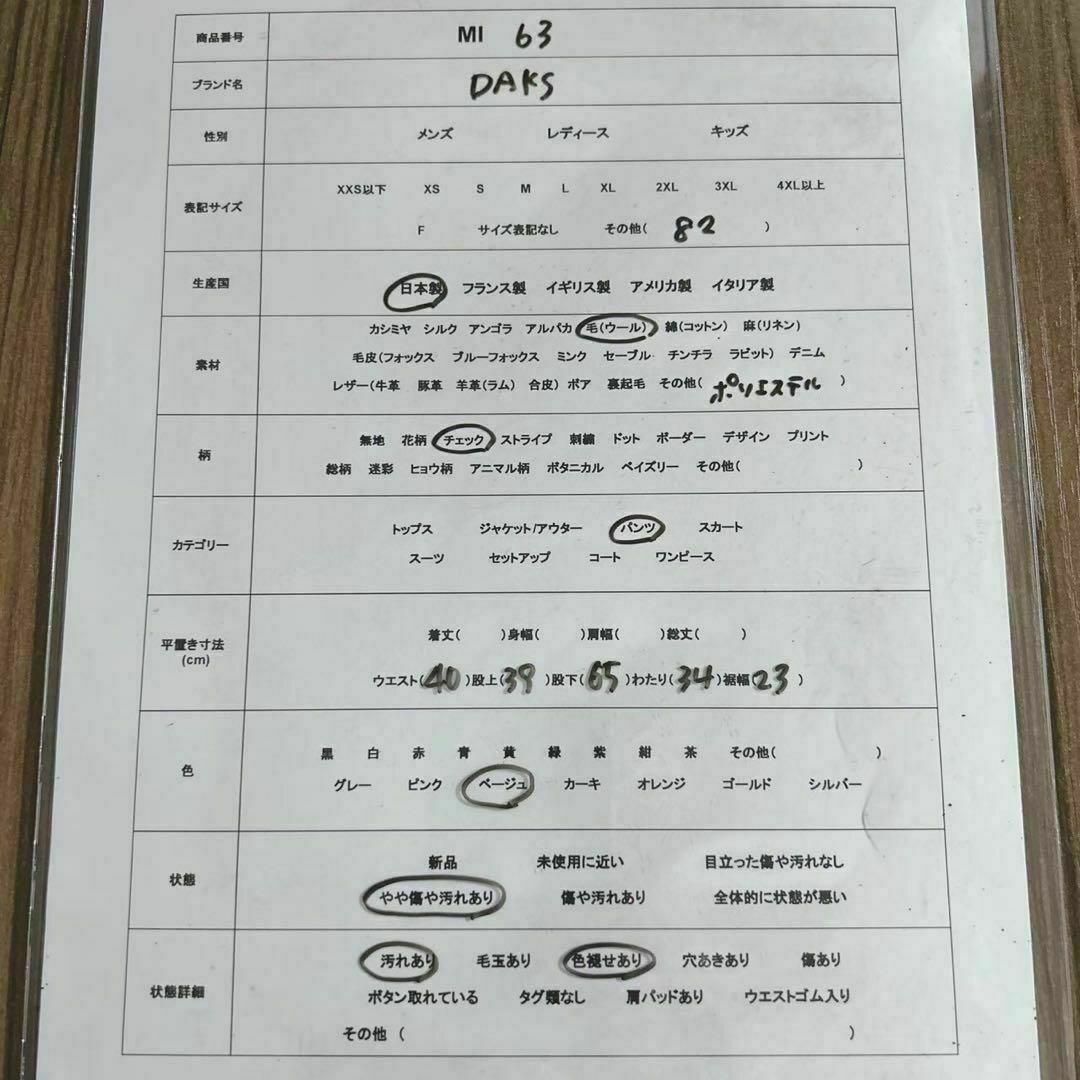 商品番号 MI 63
ブランド名 DAKS
性別 メンズ レディース キッズ
XXS以下 XS S M L XL 2XL 3XL 4XL以上
表記サイズ
F サイズ表記なし その他( 82 )
生産国 日本製 フランス製 イギリス製 アメリカ製 イタリア製
カシミヤ シルク アンゴラ アルパカ 毛(ウール) 綿(コットン) 麻(リネン)
毛皮(フォックス ブルーフォックス ミンク セーブル チンチラ ラビット) デニム
素材
レザー(牛革 豚革 羊革(ラム) 合皮) ボア 裏起毛 その他( ポリエステル )
無地 花柄 チェック ストライプ 刺繍 ドット ボーダー デザイン プリント
柄
総柄 迷彩 ヒョウ柄 アニマル柄 ボタニカル ペイズリー その他( )
トップス ジャケット/アウター パンツ スカート
カテゴリー
スーツ セットアップ コート ワンピース
着丈( )身幅( )肩幅( )総丈( )
平置き寸法
(cm)
ウエスト(40)股上(39)股下(65)わたり(34)裾幅(23)
黒 白 赤 青 黄 緑 紫 紺 茶 その他( )
色
グレー ピンク ベージュ カーキ オレンジ ゴールド シルバー
新品 未使用に近い 目立った傷や汚れなし
状態
やや傷や汚れあり 傷や汚れあり 全体的に状態が悪い
汚れあり 毛玉あり 色褪せあり 穴あきあり 傷あり
状態詳細
ボタン取れている タグ類なし 肩パッドあり ウエストゴム入り
その他 ( )